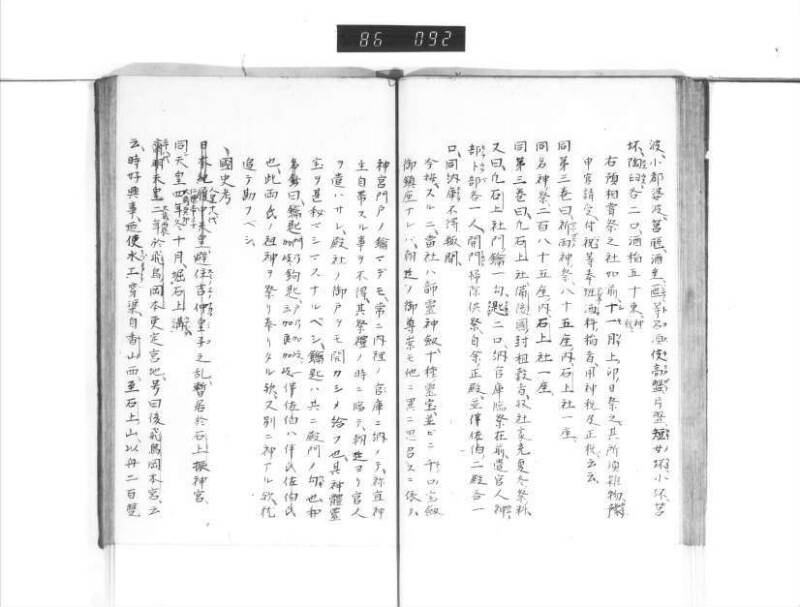 86 092
波、小郡婆波、筥瓶、酒垂、匜等、呂須伎、高盤、片盤、短女坏、小坏、筥
坏、陶臼、各二口、酒柏五十束、
右預相嘗祭之社如前、十一月上卯日祭之、其所須雑物、預
申官請受、付祝等奉班、酒料稲者、用神税及正税、云云、
同第三巻曰、祈雨神祭、八十五座、内石上社一座、
同名神祭、二百八十五座、内石上社一座、
同第三巻曰、凡石上社備後國封租穀者、収社家、充夏冬祭料、
又曰、凡石上社門鑰一勾、匙二口、納官庫、臨祭在前、遣官人神
部卜部各一人、開門掃除供祭、自余正殿、並伴佐伯二殿各一
口、同納庫不得輙開、
今按スルニ、當社ハ師靈神劔、十種靈宝、並ビニ千口ノ宝劔
御鎮座ナレバ、朝廷ノ御尊崇モ他ニ異ニ思召スニ依テ、
神宮門戸ノ鑰マデモ、常ニ内裡ノ官庫ニ納メテ、祢宜神
主自専スル事ヲ不得、其祭禮ノ時ニ臨テ、朝廷ヨリ官人
ヲ遣ハサレ、殿社ノ御戸ヲモ開カシメ給フ也、其神體靈
宝ヲ甚秘マシマスナルベシ、鑰匙ハ共ニ殿門ノ勾也、和
名鈔曰、鑰匙、鉤匙、伴佐伯ハ伴氏佐伯氏
也、此両氏ノ祖神ヲ祭リ奉リタル歟、又別ニ神アル歟、猶
追テ勘フベシ、
、國史考
日本紀履中天皇、避住吉仲皇子之乱、暫居於石上振神宮、
同、天皇四年冬十月、堀石上溝、
齊明天皇二年、於飛鳥岡本更定宮地、号曰後飛鳥岡本宮、云
云、時好興事、廼使水工穿渠、自香山西至石上山、以舟二百隻